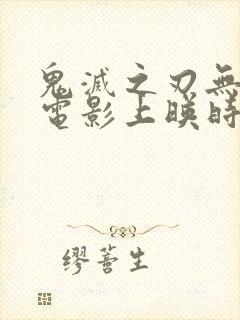 鬼滅之刃無
電影上映時
繆蕾生